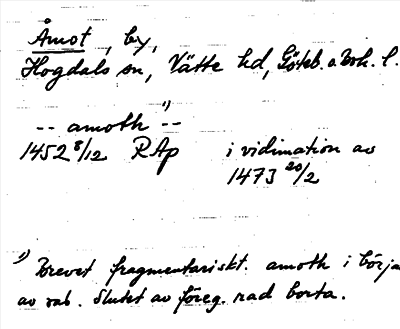 Åmot, by,
Hogdals sn, Vätte hd, Göteb. o Boh. l.
-- amoth 1) --
1452 8/12 RAp i vidimation av
1473 20/2
1) Brevet fragmentariskt. amoth i börja
av rad. Slutet av föreg. rad borta.